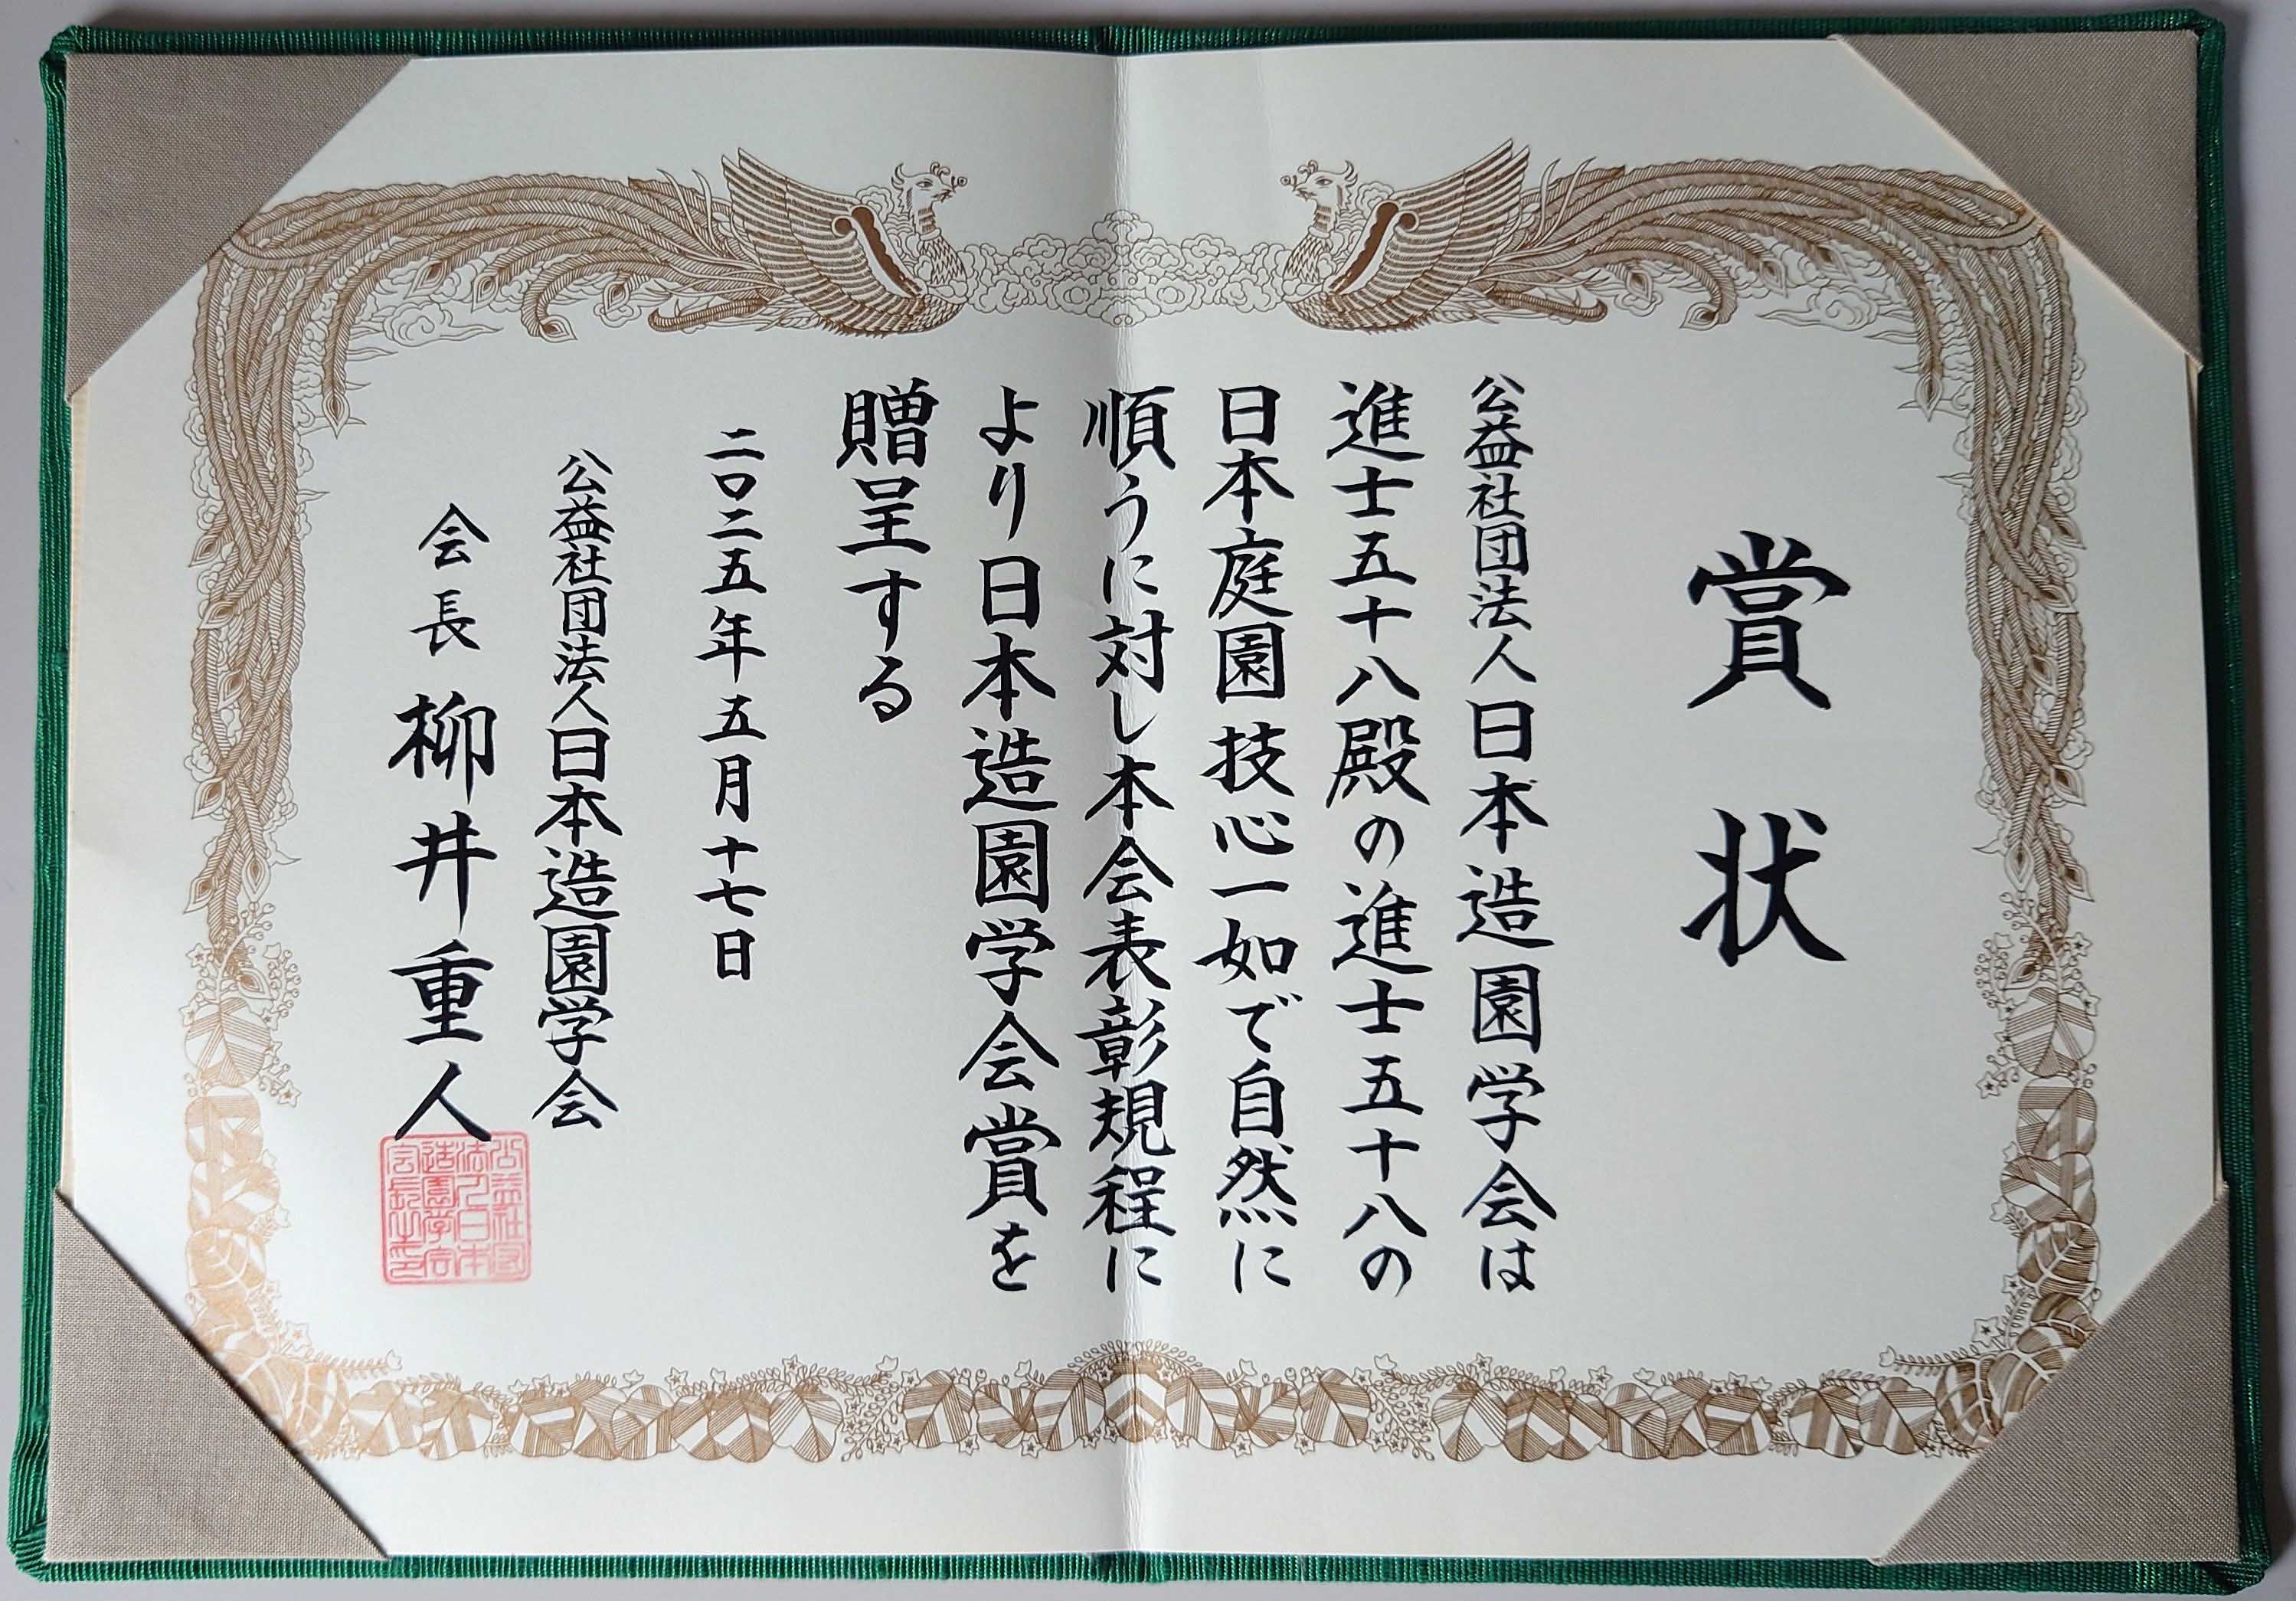 賞状
公益社団法人日本造園学会は
進士五十八殿の進士五十八の
日本庭園技心一如で自然に
順うに対し本会表彰規程に
より日本造園学会賞を
贈呈する
二〇二五年五月十七日
公益社団法人日本造園学会
会長 柳井重人
公益社団
法人日本
造園学会
会長之印